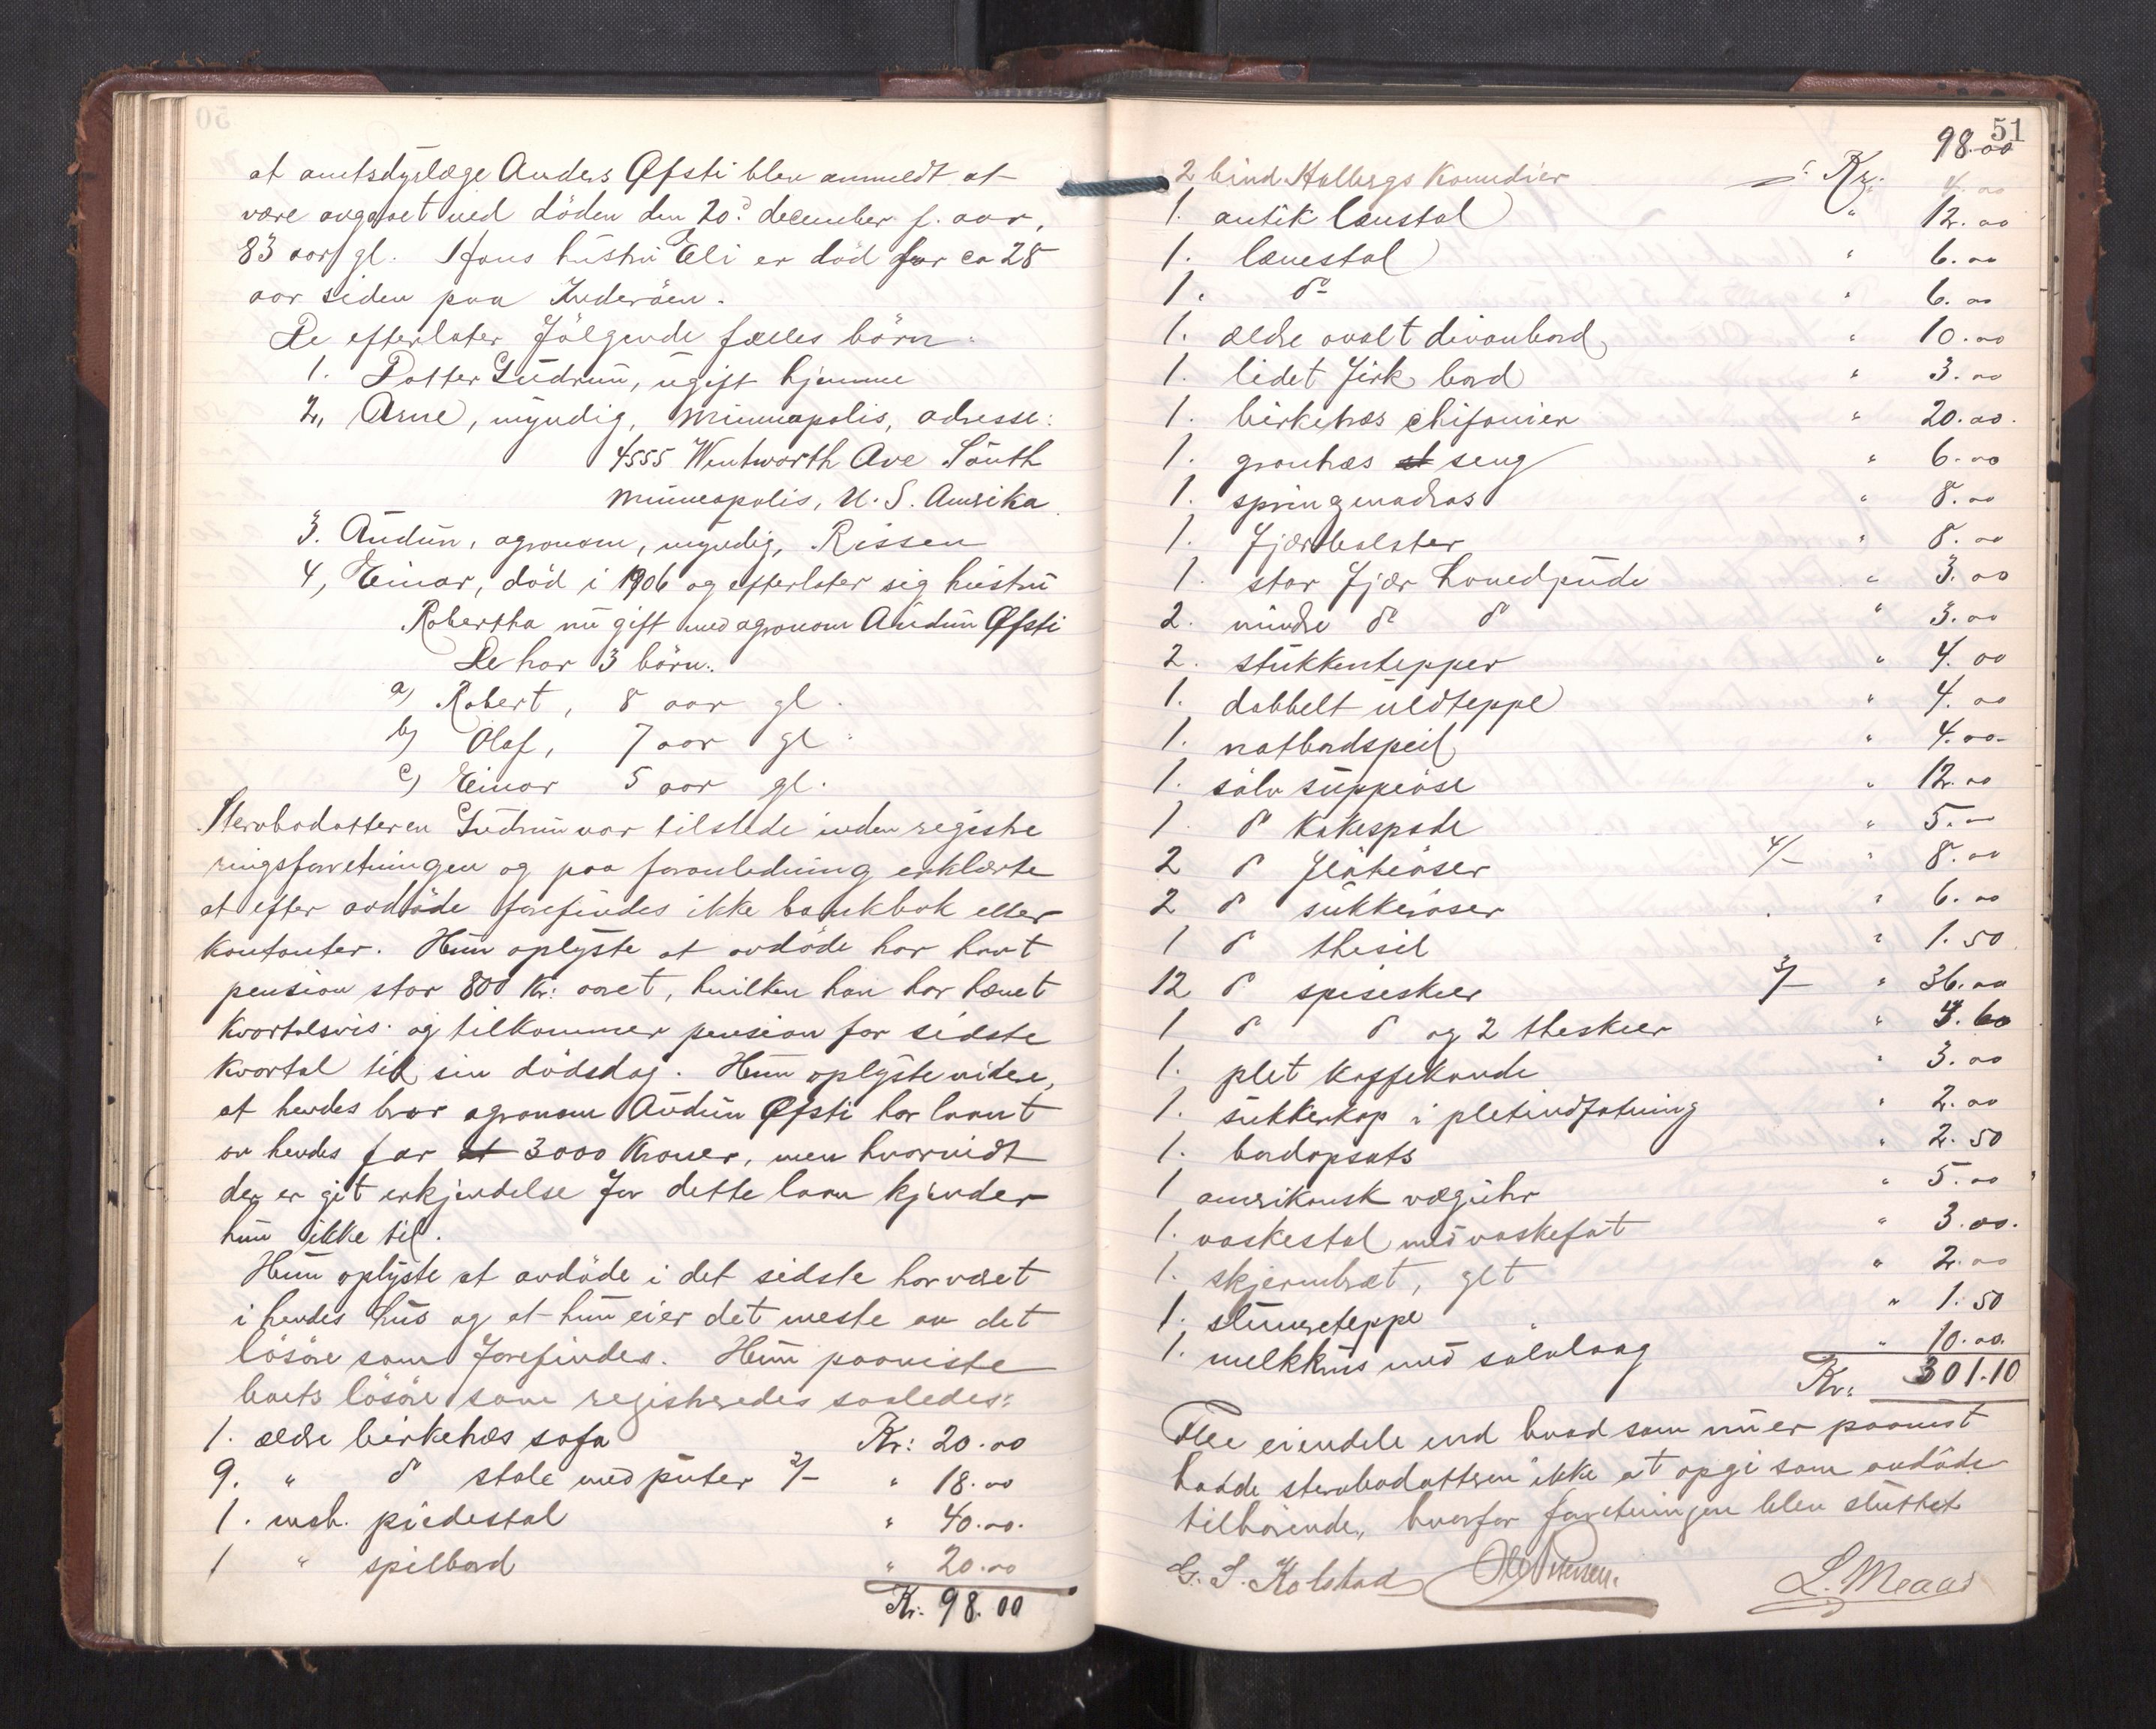 at amtsdyrlæge Anders Øfsti blev anmeldt at
være avgaaet ved döden den 20.d december f. aar,
83 aar gl. Hans hustru Eli er död for ca 28
aar siden paa Inderöen.
De efterlater følgende fælles börn:
1. Datter Gudrun, ugift hjemme
2, Arne, myndig, Minneapolis, adresse:
4555 Wentworth Ave South
Minneapolis, U. S. Amerika
3. Audun, agronom, myndig, Rissen
4, Einar, död i 1906 og efterlater sig hustru
Robertha nu gift med agronom Audun Øfsti
De har 3 börn:
a) Robert, 8 aar gl.
b) Olaf, 7 aar gl.
c) Einar 5 aar gl.
Stervbodatteren Gudrun var tilstede under registre
ringsforretningen og paa foranledning erklærte
at efter avdöde forefindes ikke bankbok eller
kontanter. Hun oplyste at avdöde har havt
pension stor 800 Kr: aaret, hvilken han har hævet
kvartalsvis og tilkommer pension for sidste
kvartal til sin dödsdag. Hun oplyste videre,
at hendes bror agronom Audun Øfsti har laant
av hendes far at 3000 Kroner, men hvorvidt
der er git erkjendelse for dette laan kjender
hun ikke til.
Hun oplyste at avdöde i det sidste har været
i hendes hus og at hun eier det meste av det
lösöre som forefindes. Hun paaviste
boets lösöre som registreredes saaledes:
1. ældre birketræs sofa Kr: 20.00
9. " do stole med puter 2/- " 18.00
1. mah. piedestal " 40.00.
1 " spilbord " 20.00
Kr. 98.00
51
98.00
2 bind Holbergs Komedier Kr. 4.00
1. antik lænstol " 12.00
1. lænestol " 6.00
1. do " 6.00
1. ældre ovalt divanbord " 10.00
1. lidet firk. bord " 3.00
1. birketræs chifonier " 20.00.
1. grantræs st seng " 6.00
1. springmadras " 8.00
1. fjærbolster " 8.00
1. stor fjær hovedpude " 3.00
2. mindre do do " 3.00
2. stukkentepper " 4.00
1. dobbelt uldteppe " 4.00
1. natbordspeil " 4.00
1. sölv suppeöse " 12.00
1 do kakespade " 5.00
2 do flöteöser 4/- " 8.00
2 do sukkeröser " 6.00
1 do thesil " 1.50
12 do spiseskeer 3/- " 36.00
1 do do og 2 theskeer " 4.60
1. plet kaffekande " 3.00
1. sukkerkop i pletindfatning " 2.00
1. bordopsats " 2.50
1 amerikansk væguhr " 5.00
1. vaskestol med vaskefat " 3.00.
1. skjermbræt, glt " 2.00
1. slumreteppe " 1.50
1. melkkrus med sölvlaag " 10.00.
Kr. 301.10
Flere eiendele end hvad som nu er paavist
hadde stervbodatteren ikke at opgi som avdöde
tilhörende, hvorfor forretningen blev sluttet
G. S. Kolstad Ole Petersen. L. Meaas